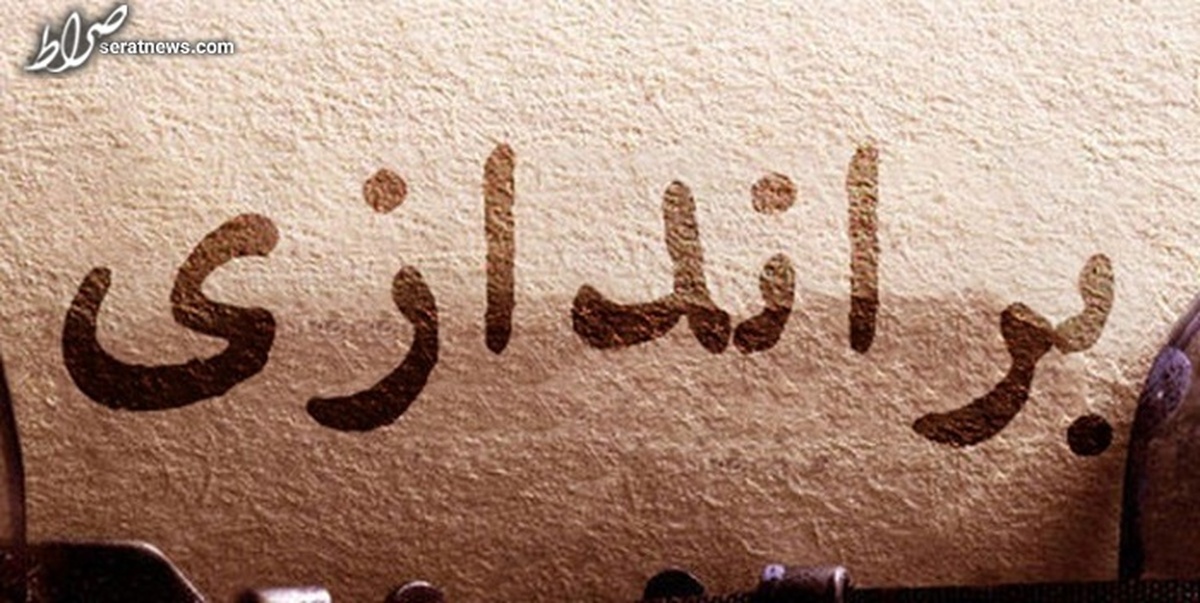 صراط seratnews.com
براندازی